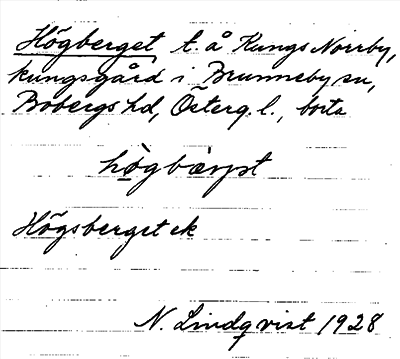 Högberget t. å Kungs Norrby,
kungsgård i Brunneby sn,
Bobergs hd, Österg. l., borta
hògbæ̀rjət
Högsberget ek
N. Lindqvist 1928